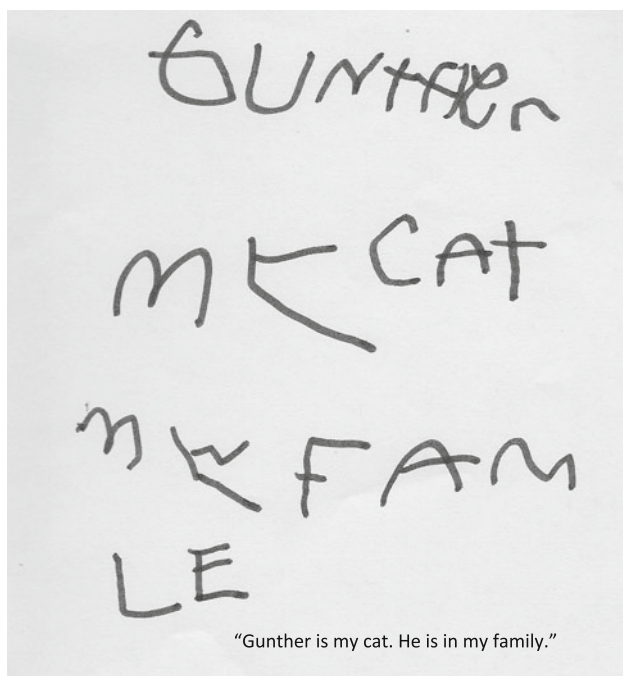 GUNTHER
MY CAT
MY FAM
LE
“Gunther is my cat. He is in my family.”